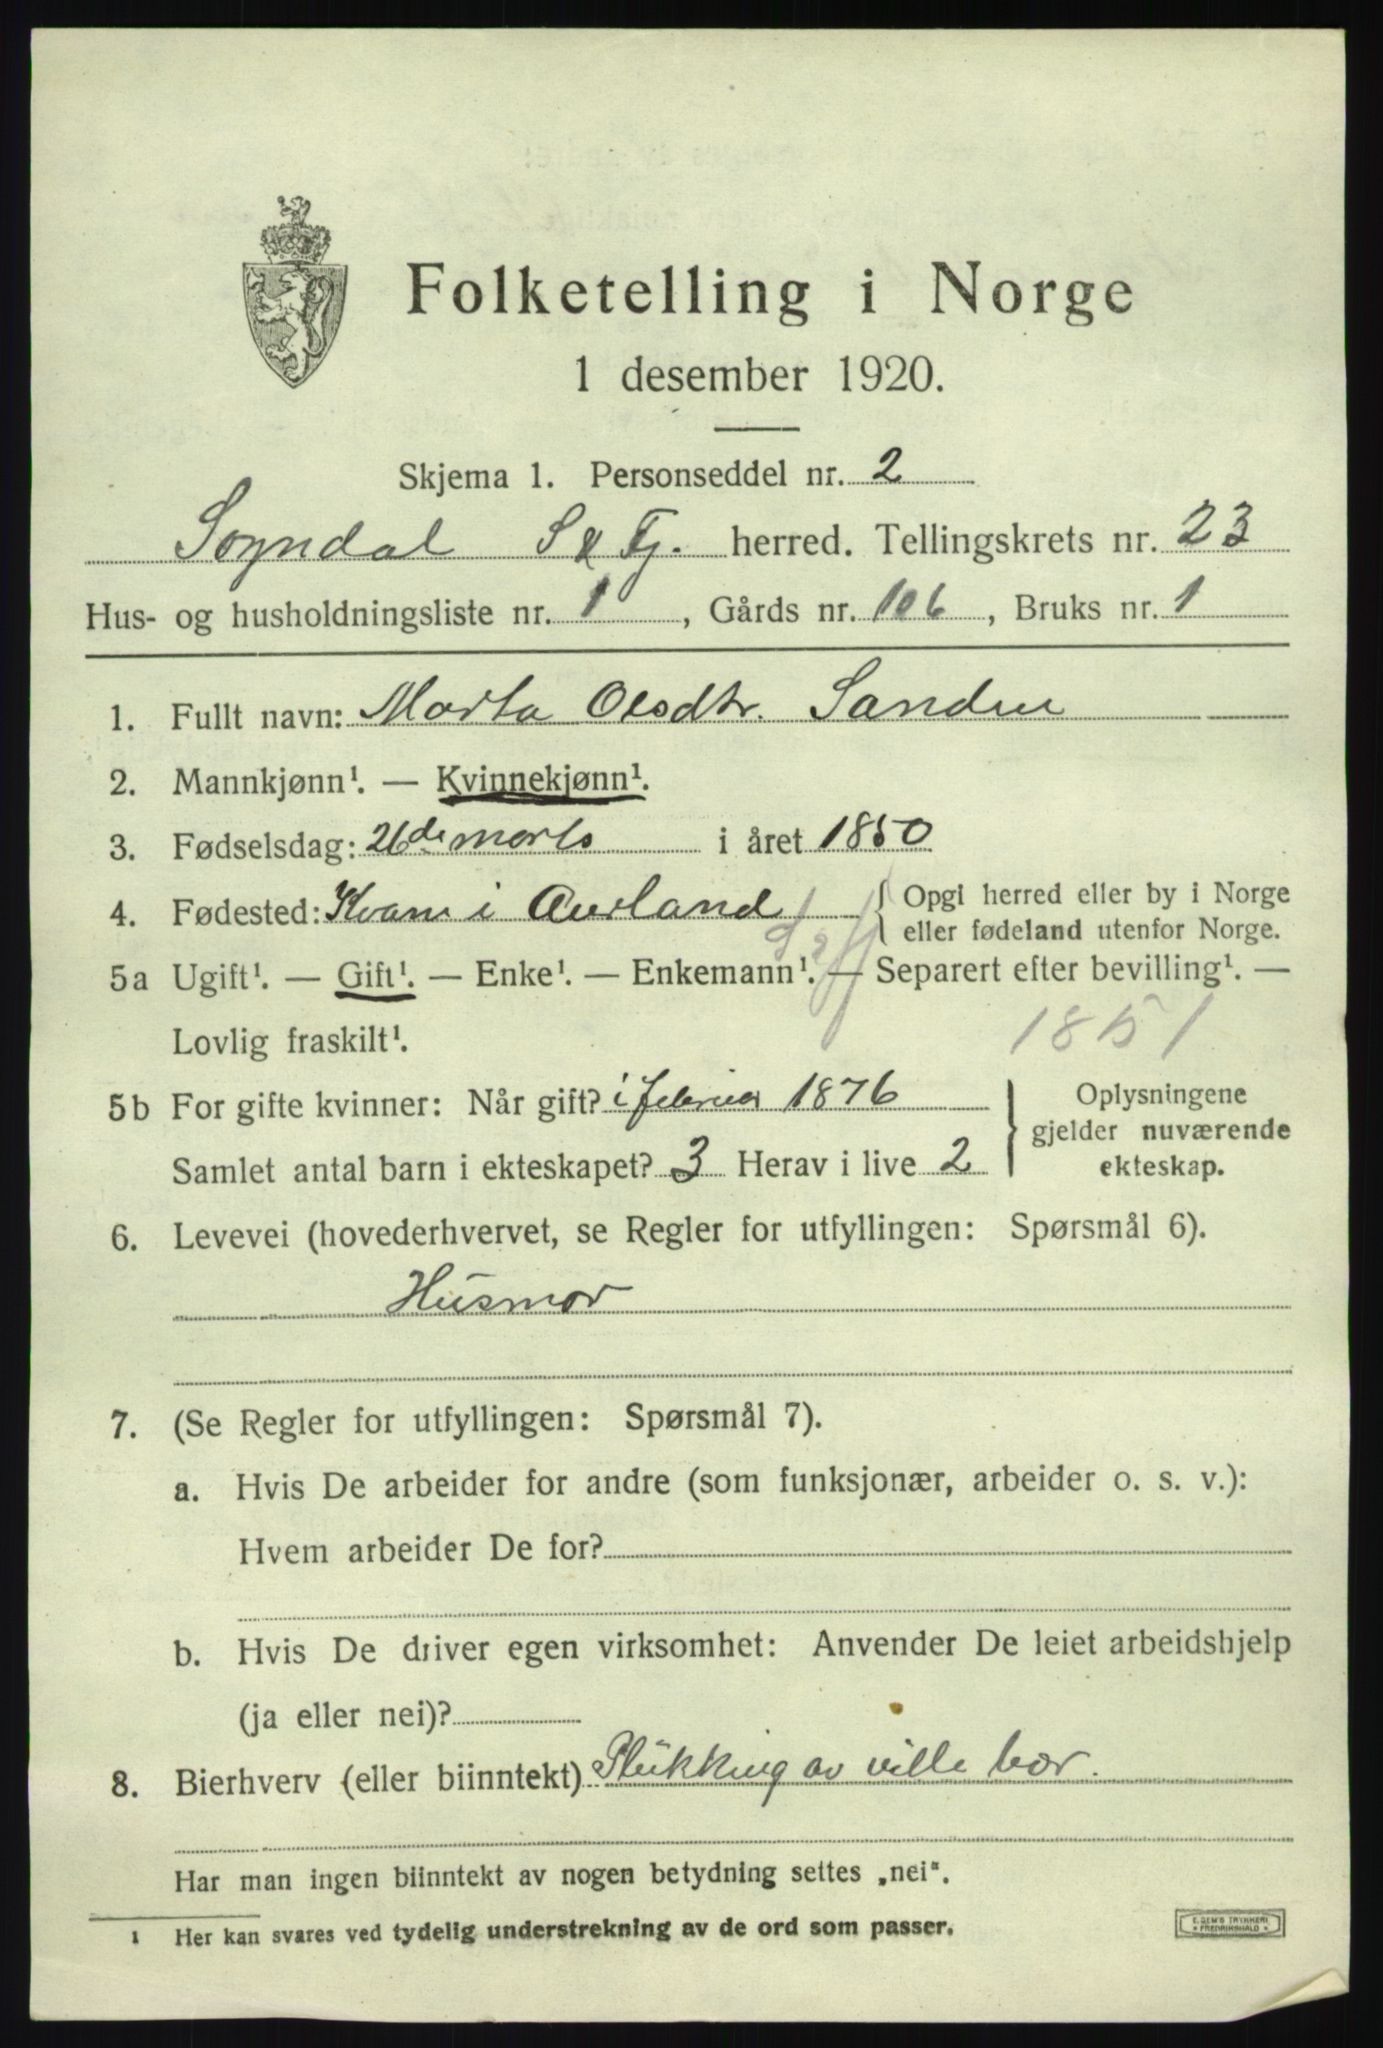 Folketelling i Norge
1 desember 1920.
Skjema 1. Personseddel nr. 2
Sogndal S & Fj. herred. Tellingskrets nr. 23
Hus- og husholdningsliste nr. 1, Gårds nr. 106, Bruks nr. 1
1. Fullt navn: Marta Olsdtr. Sanden
2. Mannkjønn¹. — Kvinnekjønn¹.
3. Fødselsdag: 26de marts i året 1850
4. Fødested: Kvam i Aurland { Opgi herred eller by i Norge
eller fødeland utenfor Norge.
S&Fj
5a Ugift¹. — Gift¹. — Enke¹. — Enkemann¹. — Separert efter bevilling¹. —
Lovlig fraskilt¹.
1851
5b For gifte kvinner: Når gift? i februar 1876
Samlet antal barn i ekteskapet? 3 Herav i live 2
} Oplysningene
gjelder nuværende
ekteskap.
6. Levevei (hovederhvervet, se Regler for utfyllingen: Spørsmål 6).
Husmor
7. (Se Regler for utfyllingen: Spørsmål 7).
a. Hvis De arbeider for andre (som funksjonær, arbeider o. s. v.):
Hvem arbeider De for?
b. Hvis De driver egen virksomhet: Anvender De leiet arbeidshjelp
(ja eller nei)?
8. Bierhverv (eller biinntekt) Plukking av ville bær.
Har man ingen biinntekt av nogen betydning settes „nei“.
1 Her kan svares ved tydelig understrekning av de ord som passer.
E. SEM'S TRYKKERI
FREDRIKSHALD